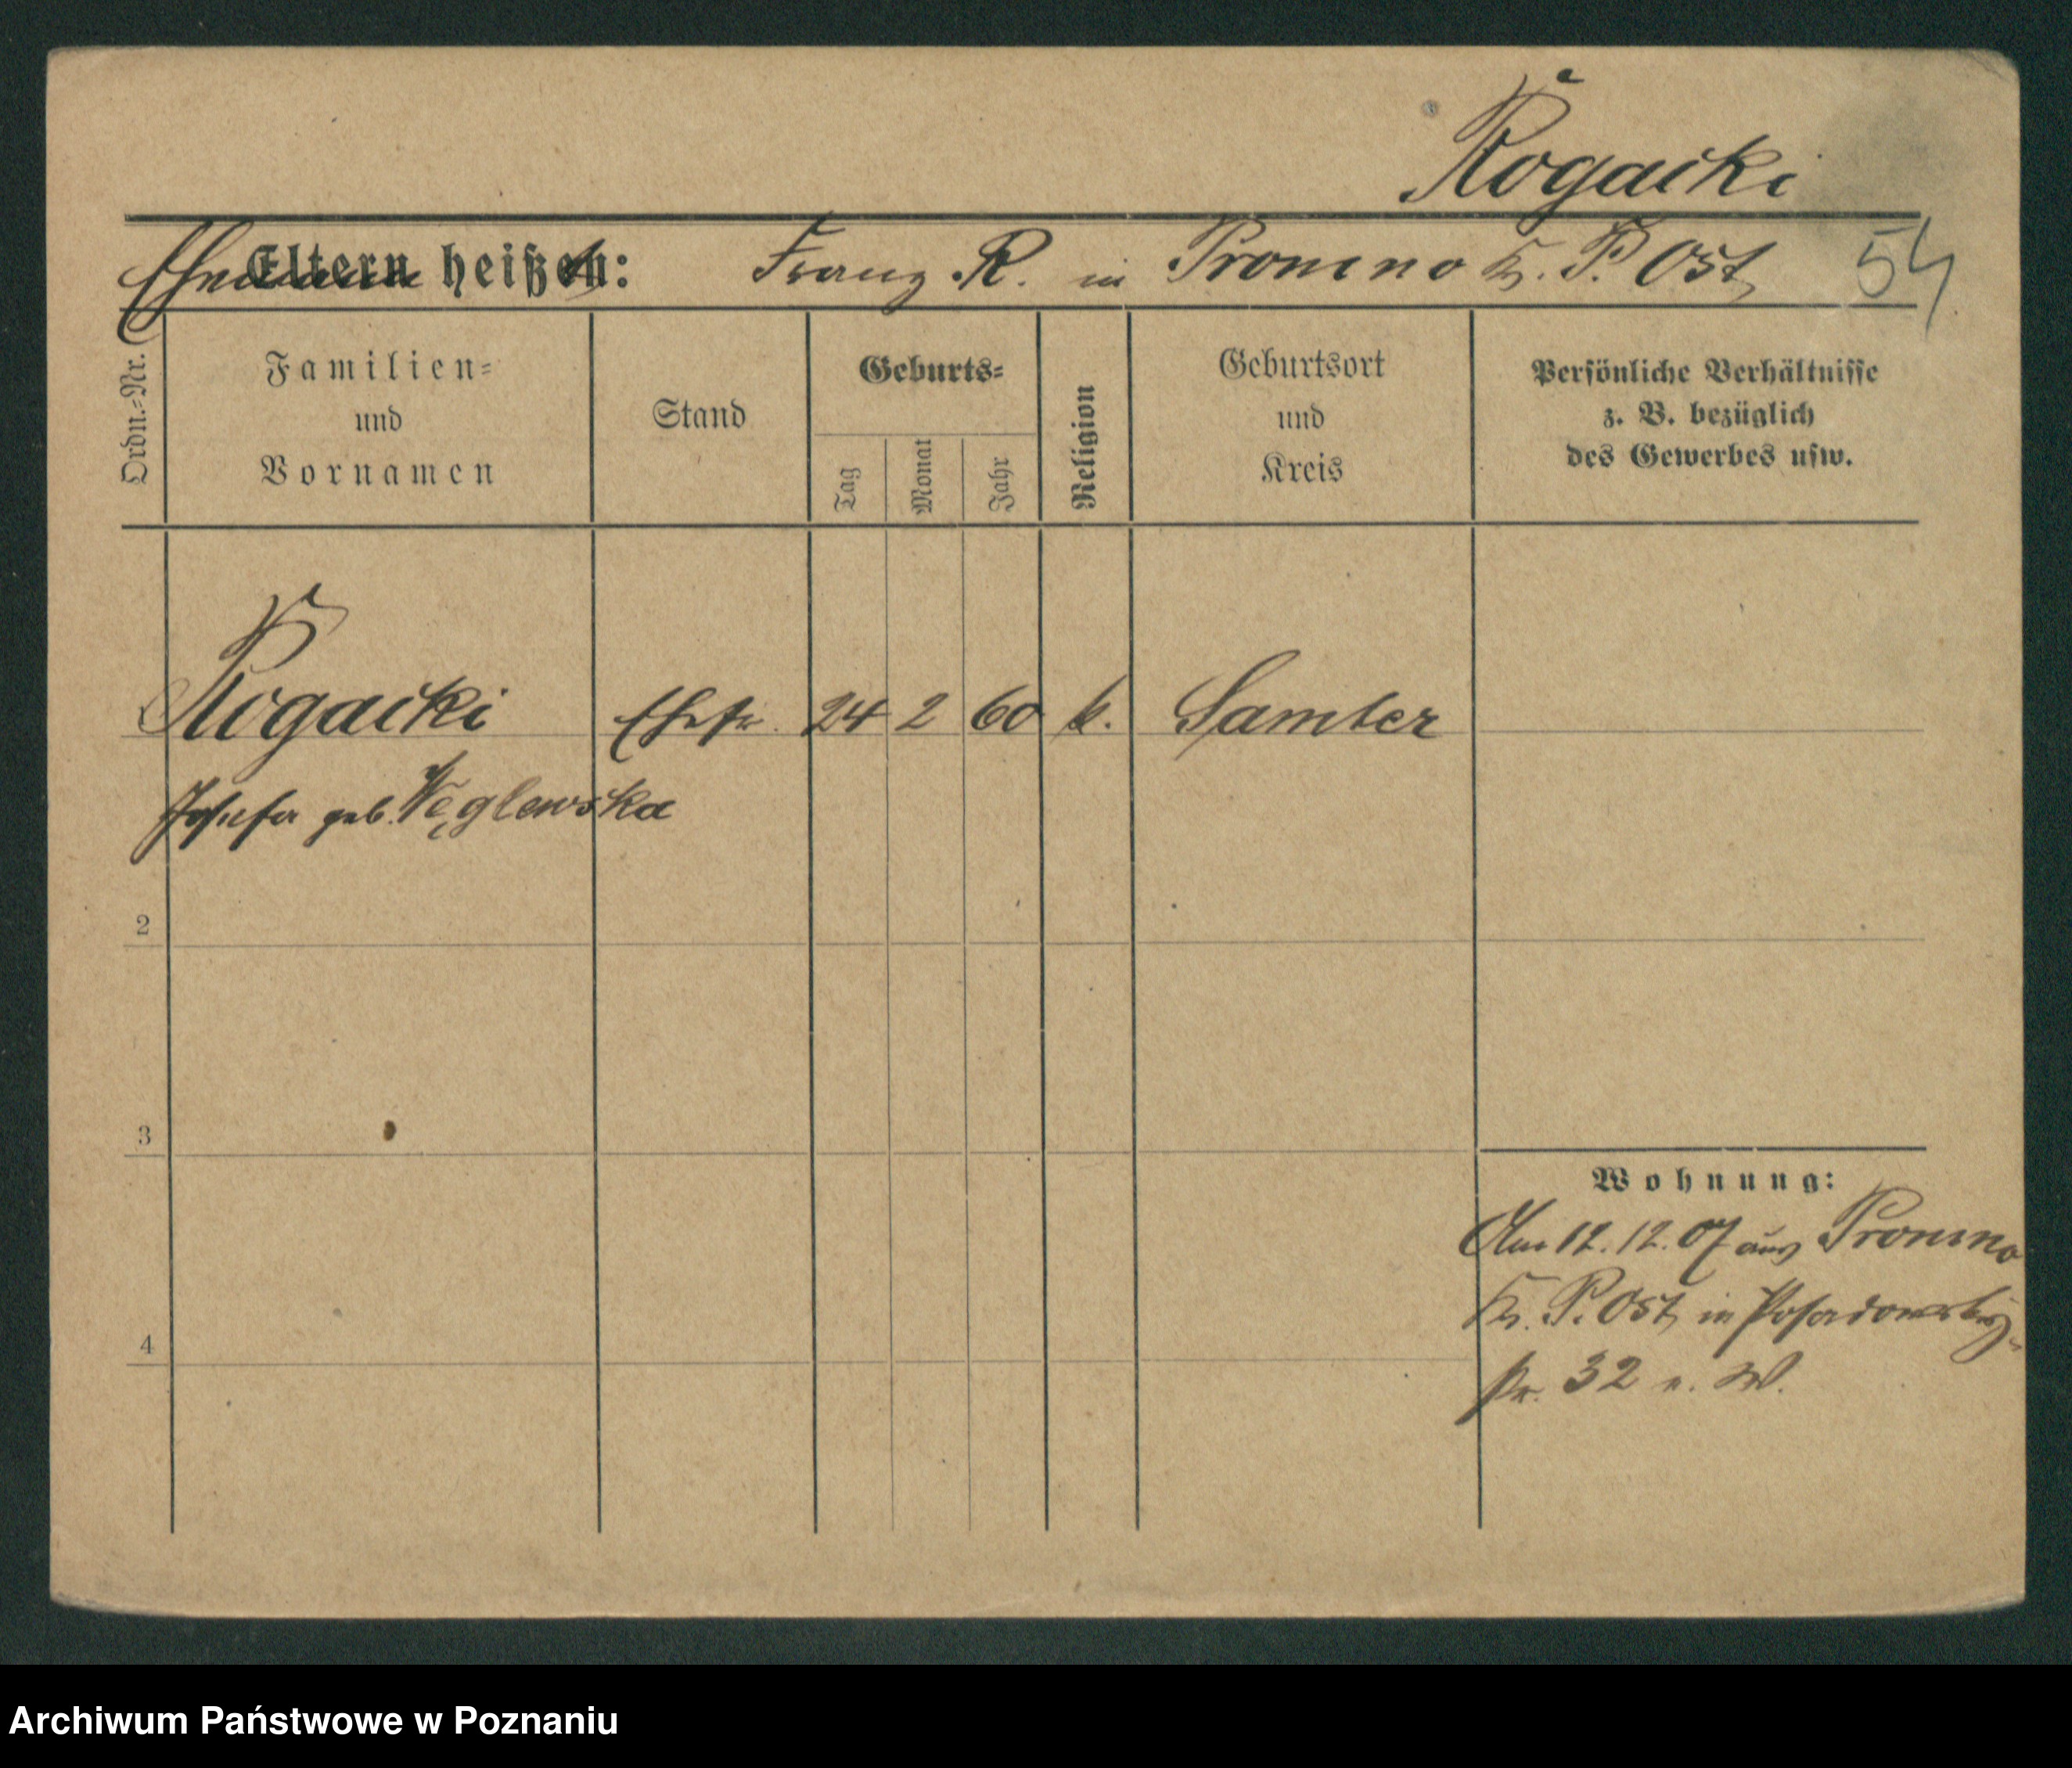 Rogacki
Ehemann heißt: Franz R. in Promno Kr. P. Ost
54
Ordn.-Nr.
Familien-
und
Vornamen
Stand
Geburts-
Tag
Monat
Jahr
Religion
Geburtsort
und
Kreis
Persönliche Verhältnisse
z. B. bezüglich
des Gewerbes usw.
Rogacki Ehefr. 24 2 60 k. Samter
Josefa geb. Węglewska
2
3
4
Wohnung:
Am 12.12.07 aus Promno
Kr. P. Ost in Posadowsky-
str. 32 W.
Archiwum Państwowe w Poznaniu